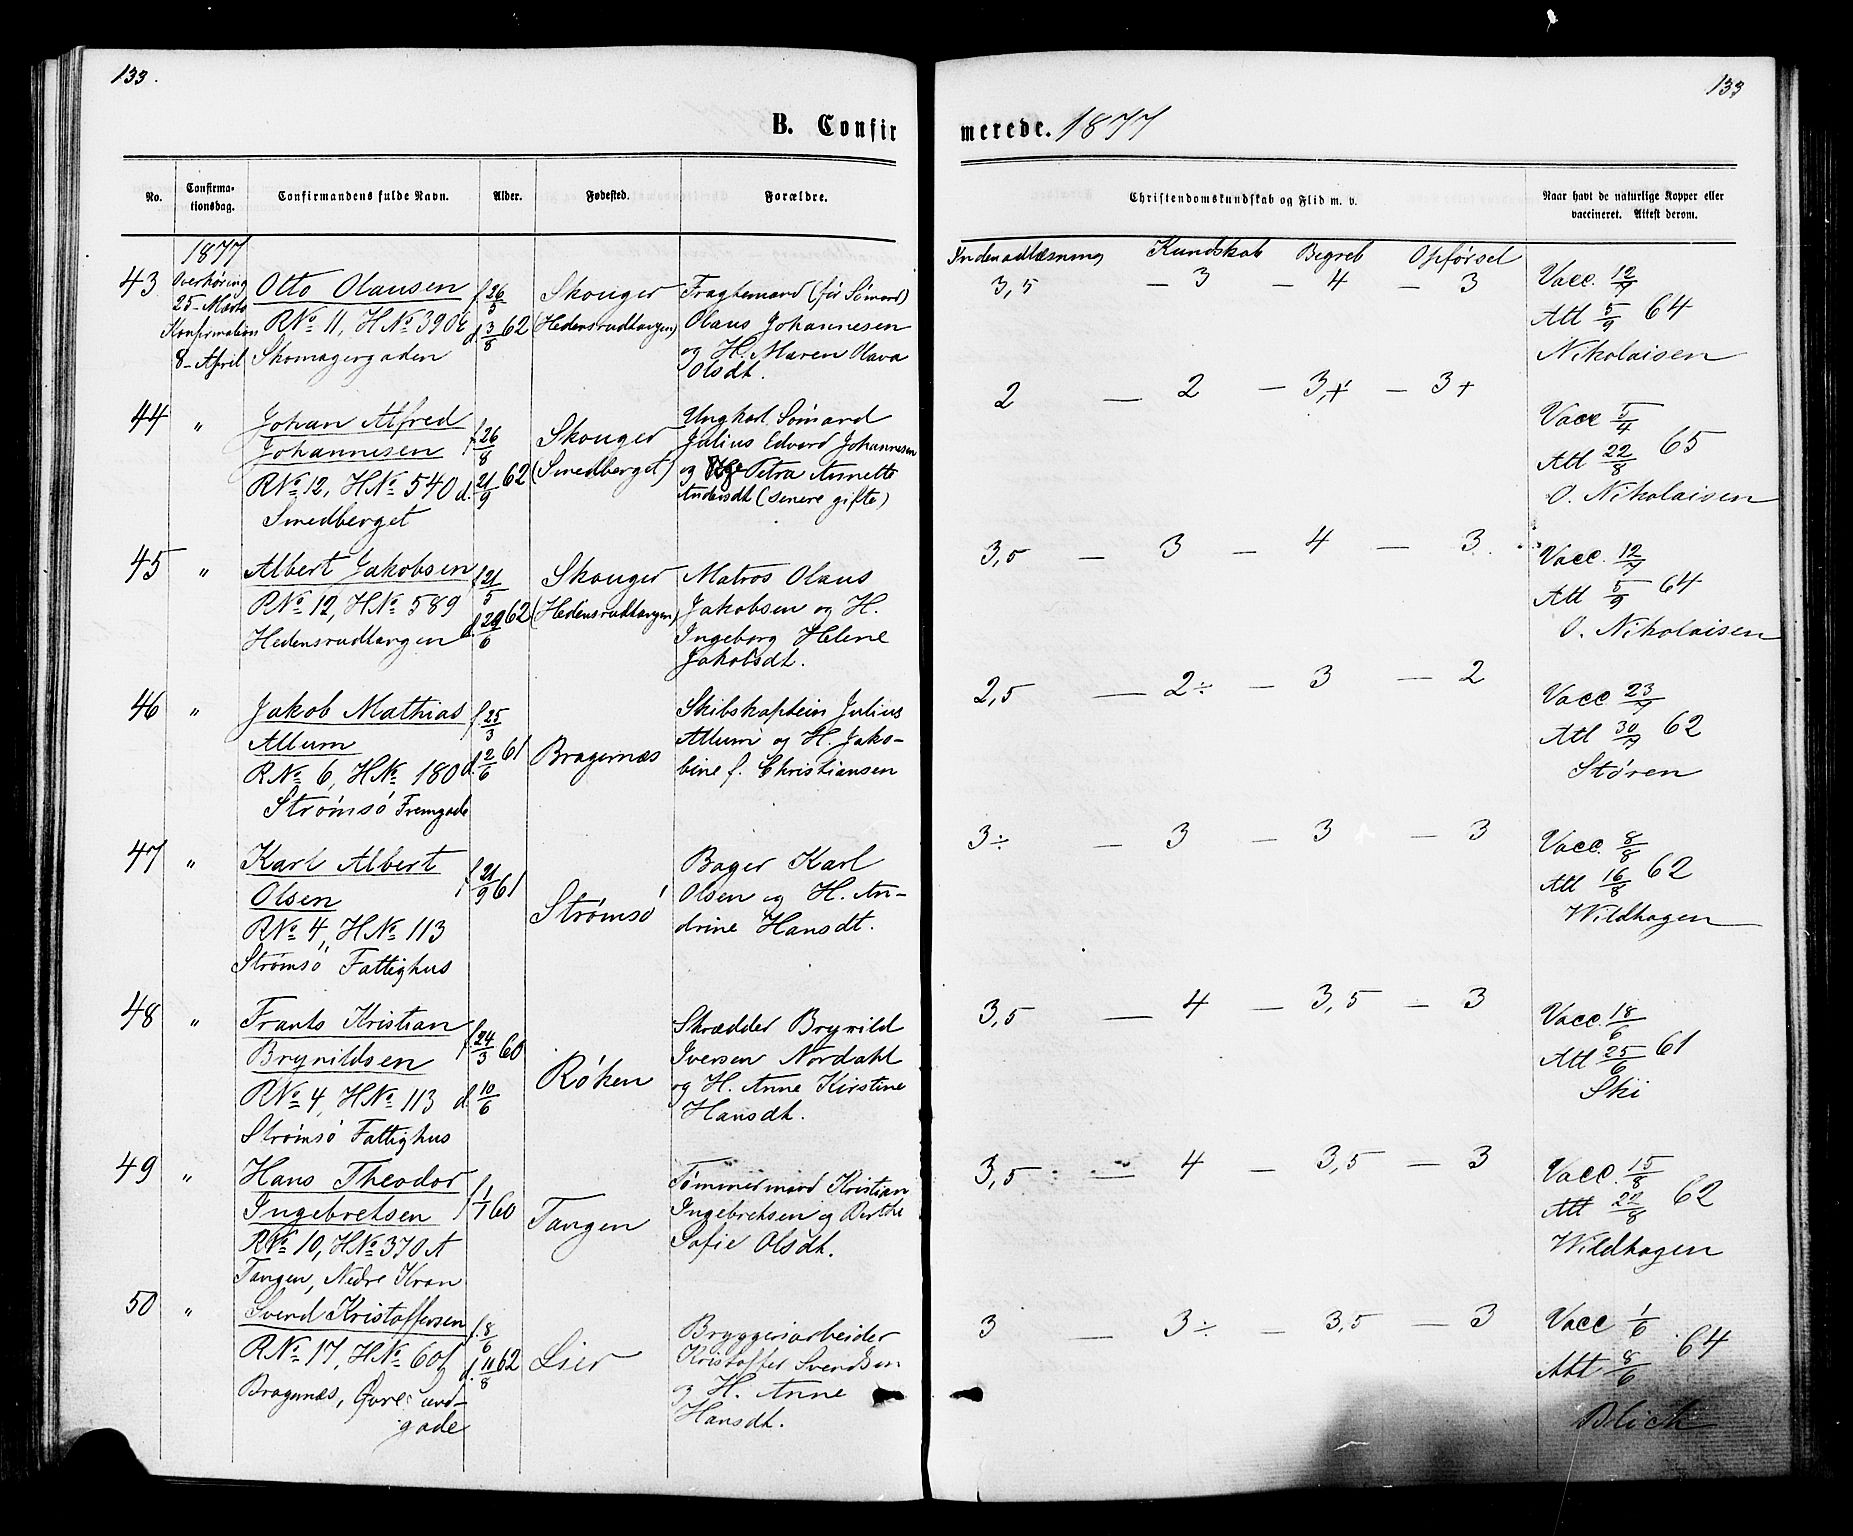 133.
133
B. Confir
merede. 1877
No.
Confirma-
tionsdag.
Confirmandens fulde Navn.
Alder.
Fødested.
Forældre.
Christendomskundskab og Flid m. v.
Naar havt de naturlige Kopper eller
vaccineret. Attest derom.
1877
Indenadlæsning Kundskab Begreb Opførsel
43
Overhøring
25- Marts
Konfirmation
8- April
Otto Olausen
RNo 11, HNo 390b
Skomagergaden
f. 26/5
d. 3/8 62
Skouger
(Hedensrudtangen)
Fragtemand (før Sømand)
Olaus Johannesen
og H. Maren Olava
Olsdt.
3,5 — 3 — 4 — 3
Vacc. 12/7
Att 5/9 64
Nikolaisen
44 "
Johan Alfred
Johannesen
RNo 12, HNo 540
Smedberget
f. 26/8
d. 21/9 62
Skouger
(Smedberget)
Ungkarl Sømand
Julius Edvard Johannesen
og Pge Petra Annette
Andersdt (senere gifte)
2 — 2 — 3,+ — 3+
Vacc 5/4
Att 22/8 65
O. Nikolaisen
45 "
Albert Jakobsen
RNo 12, HNo 589
Hedensrudtangen
f. 21/5
d. 29/6 62
Skouger
(Hedensrudtangen)
Matros Olaus
Jakobsen og H.
Ingeborg Helene
Jakobsdt.
3,5 — 3 — 4 — 3.
Vacc. 12/7
Att 5/9 64
O. Nikolaisen
46 "
Jakob Mathias
Allum
RNo 6, HNo 180
Strømsö Fremgade
f. 25/3
d. 2/6 61
Bragernæs
Skibskaptein Julius
Allum og H. Jako-
bine f. Christiansen
2,5 — 2÷ — 3 — 2
Vacc 23/7
Att 30/7 62
Støren
47 "
Karl Albert
Olsen
RNo 4, HNo 113
Strømsö Fattighus
f. 21/9 61
Strømsö
Bager Karl
Olsen og H. An-
drine Hansdt.
3÷ — 3 — 3 — 3
Vacc. 8/8
Att 16/8 62
Wildhagen
48 "
Frants Kristian
Brynildsen
RNo 4, HNo 113
Strømsö Fattighus
f. 24/3 60
d. 10/6
Röken
Skrædder Brynild
Iversen Nordahl
og H. Anne Kirstine
Hansdt.
3,5 — 4 — 3,5 — 3
Vacc. 18/6
Att 25/6 61
Ski
49 "
Hans Theodor
Ingebretsen
RNo 10, HNo 370 A
Tangen, Nedre Kran
f. 1/1 60
Tangen
Tømmermand Kristian
Ingebretsen og Berthe
Sofie Olsdt.
3,5 — 4 — 3,5 — 3
Vacc. 15/8
Att 22/8 62
Wildhagen
50 "
Svend Kristoffersen
RNo 17, HNo 601
Bragernæs, Øvre Lund-
gade
f. 8/6
d. 11/8 62
Lier
Bryggeriarbeider
Kristoffer Svendsen
og H. Anne
Hansdt.
3 — 3÷ — 3,5 — 3
Vacc 1/6
Att 8/6 64
Blich